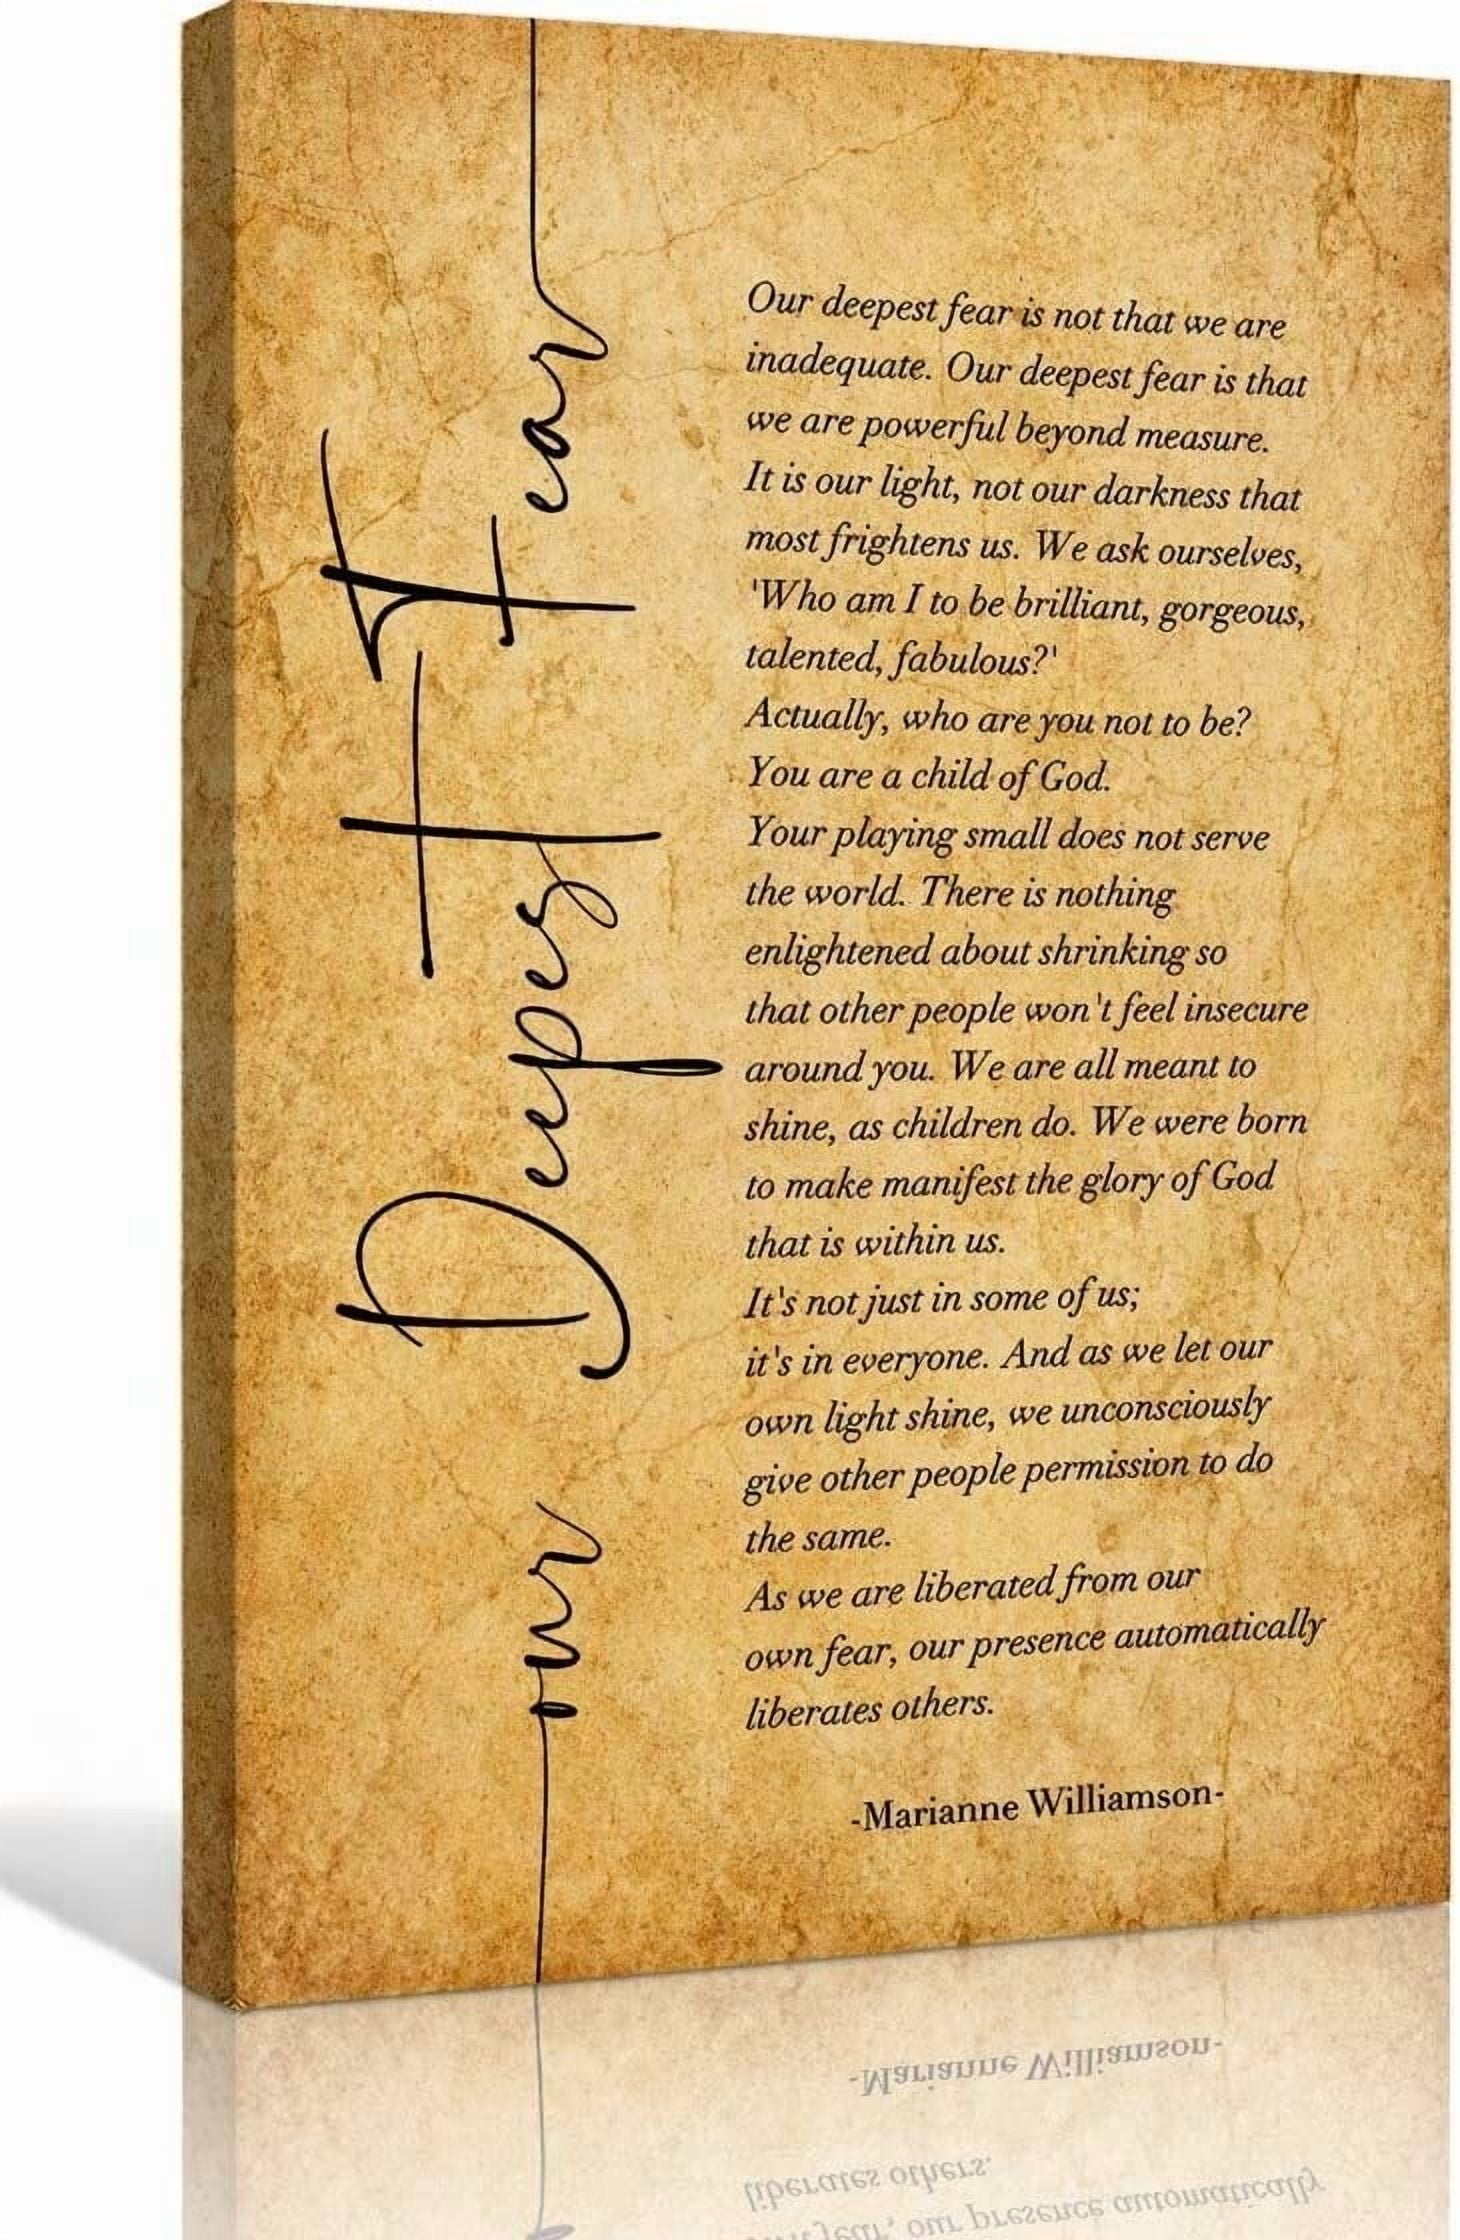 our Deepest Fear
Our deepest fear is not that we are
inadequate. Our deepest fear is that
we are powerful beyond measure.
It is our light, not our darkness that
most frightens us. We ask ourselves,
'Who am I to be brilliant, gorgeous,
talented, fabulous?'
Actually, who are you not to be?
You are a child of God.
Your playing small does not serve
the world. There is nothing
enlightened about shrinking so
that other people won't feel insecure
around you. We are all meant to
shine, as children do. We were born
to make manifest the glory of God
that is within us.
It's not just in some of us;
it's in everyone. And as we let our
own light shine, we unconsciously
give other people permission to do
the same.
As we are liberated from our
own fear, our presence automatically
liberates others.
-Marianne Williamson-
-Marianne Williamson-
liberates others.
own fear, our presence automatically